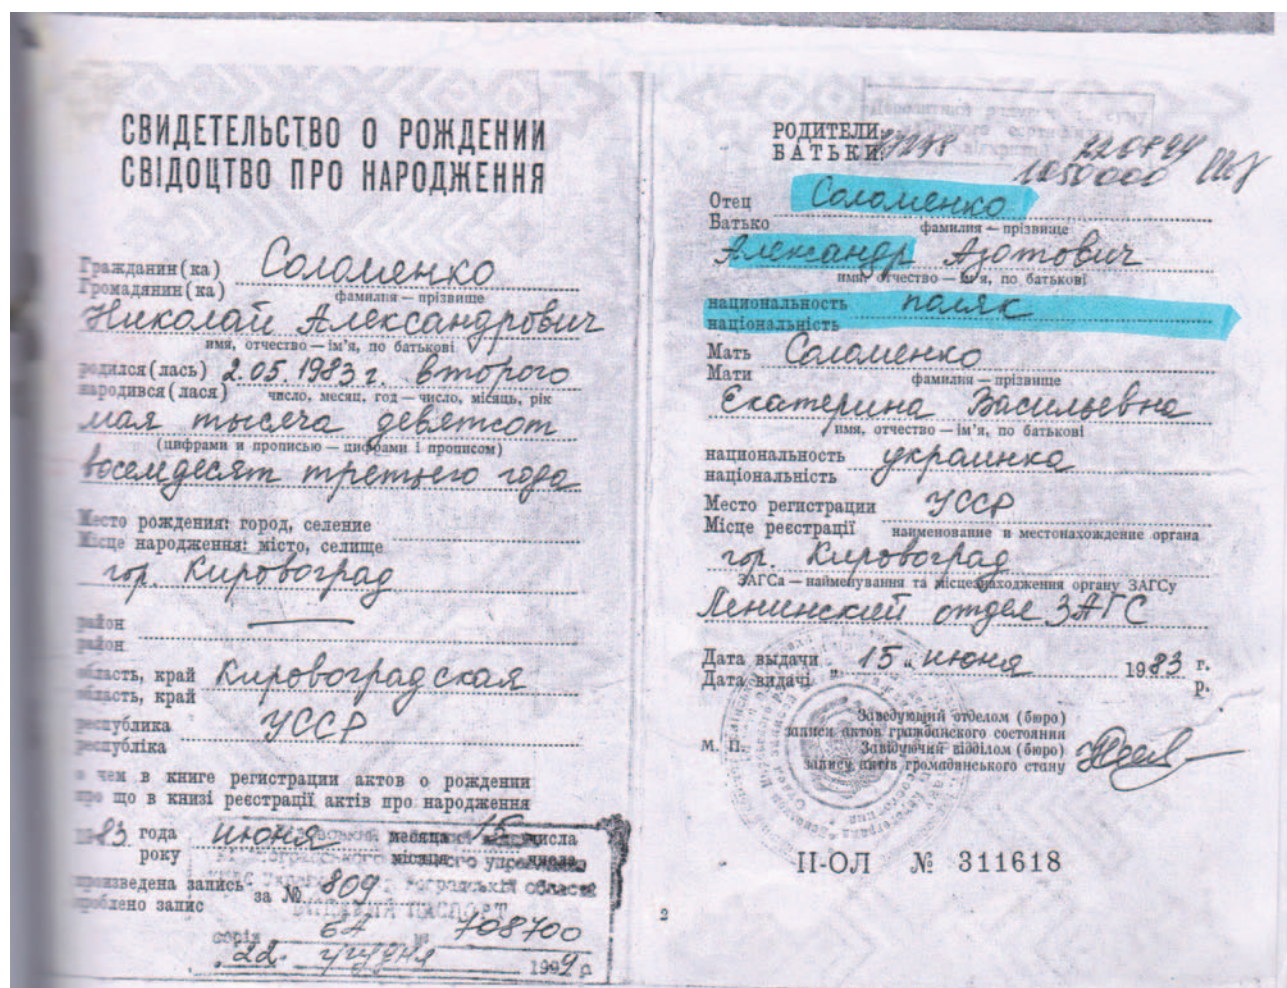 СВИДЕТЕЛЬСТВО О РОЖДЕНИИ
СВІДОЦТВО ПРО НАРОДЖЕННЯ
Гражданин(ка) Соломенко
Громадянин(ка)
фамилия — прізвище
Николай Александрович
имя, отчество — ім'я, по батькові
родился(лась) 2.05.1983 г. второго
народився(лася) число, месяц, год — число, місяць, рік
мая тысяча девятсот
(цифрами и прописью — цифрами і прописом)
восемдесят третьего года
Место рождения: город, селение
Місце народження: місто, селище
гор. Кировоград
район
район
область, край Кировоградская
область, край
республика УССР
республіка
о чем в книге регистрации актов о рождении
про що в книзі реєстрації актів про народження
1983 года июня месяца 15 числа
року місяця числа
произведена запись за № 809
зроблено запис
ВИДАНИЙ ПАСПОРТ
серія БА № 708700
22 грудня 1999 р
РОДИТЕЛИ:
БАТЬКИ:
220894
1050000
Отец Соломенко
Батько фамилия — прізвище
Александр Азотович
имя, отчество — ім'я, по батькові
национальность поляк
національність
Мать Соломенко
Мати фамилия — прізвище
Екатерина Васильевна
имя, отчество — ім'я, по батькові
национальность украинка
національність
Место регистрации УССР
Місце реєстрації наименование и местонахождение органа
гор. Кировоград
ЗАГСа — найменування та місцезнаходження органу ЗАГСу
Ленинский отдел ЗАГС
Дата выдачи „15" июня 1983 г.
Дата видачі р.
Заведующий отделом (бюро)
записи актов гражданского состояния
М. П. Завідуючий відділом (бюро)
запису актів громадянського стану
II-ОЛ № 311618
2